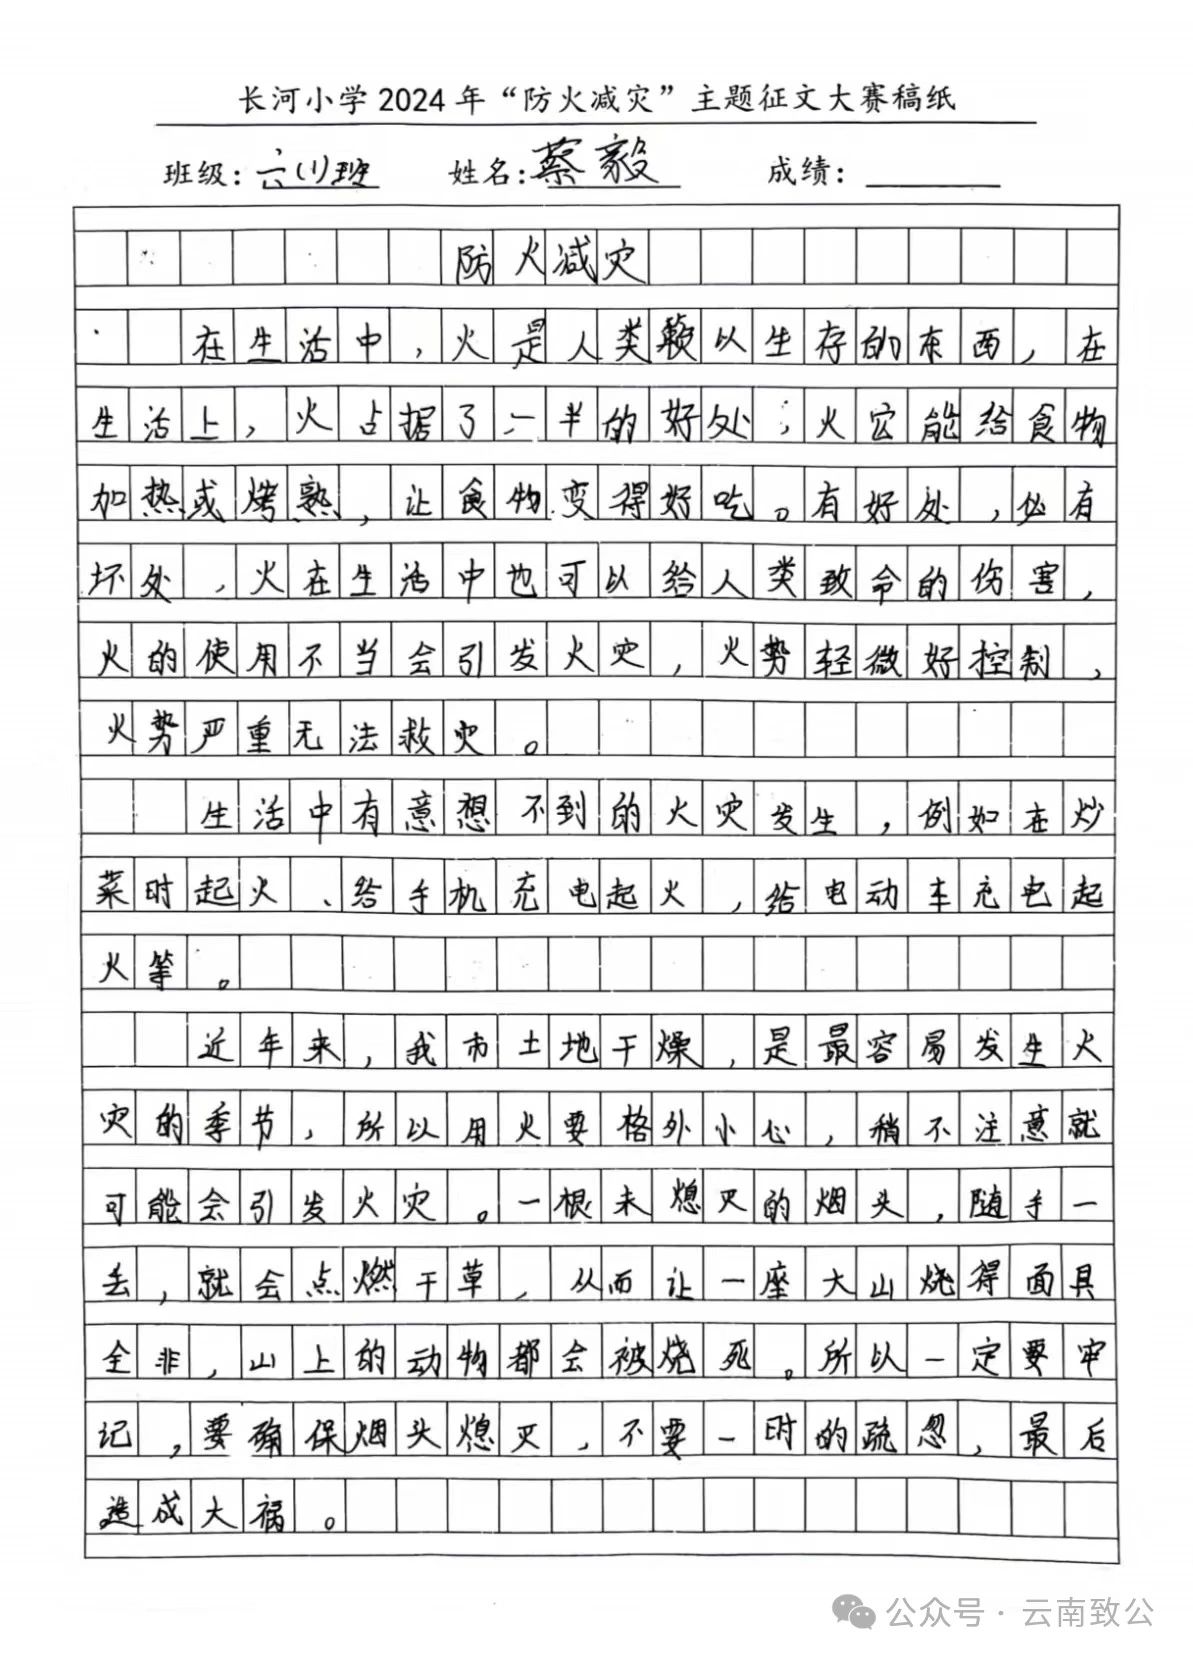 长河小学2024年“防火减灾”主题征文大赛稿纸
班级：六(1)班 姓名：蔡毅 成绩：
防火减灾
在生活中，火是人类赖以生存的东西，在
生活上，火占据了一半的好处，火它能给食物
加热或烤熟，让食物变得好吃。有好处，必有
坏处，火在生活中也可以给人类致命的伤害，
火的使用不当会引发火灾，火势轻微好控制，
火势严重无法救灾。
生活中有意想不到的火灾发生，例如在炒
菜时起火、给手机充电起火，给电动车充电起
火等。
近年来，我市土地干燥，是最容易发生火
灾的季节，所以用火要格外小心，稍不注意就
可能会引发火灾。一根未熄灭的烟头，随手一
丢，就会点燃干草，从而让一座大山烧得面具
全非，山上的动物都会被烧死。所以一定要牢
记，要确保烟头熄灭，不要一时的疏忽，最后
造成大祸。
公众号·云南致公